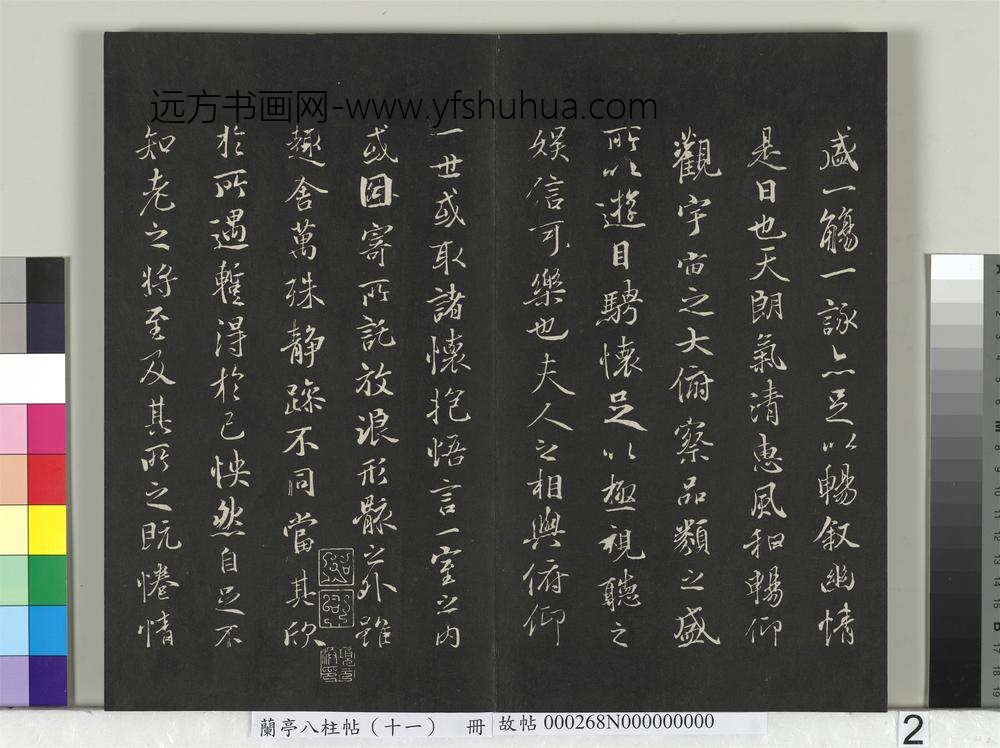 远方书画网-www.yfshuhua.com
盛一觴一詠亦足以暢叙幽情
是日也天朗氣清惠風和暢仰
觀宇宙之大俯察品類之盛
所以遊目騁懷足以極視聽之
娱信可樂也夫人之相與俯仰
一世或取諸懷抱悟言一室之内
或因寄所託放浪形骸之外雖
趣舍萬殊静躁不同當其欣
於所遇蹔得於己怏然自足不
知老之將至及其所之既惓情
蘭亭八柱帖（十一） 冊
故帖 000268N000000000
2